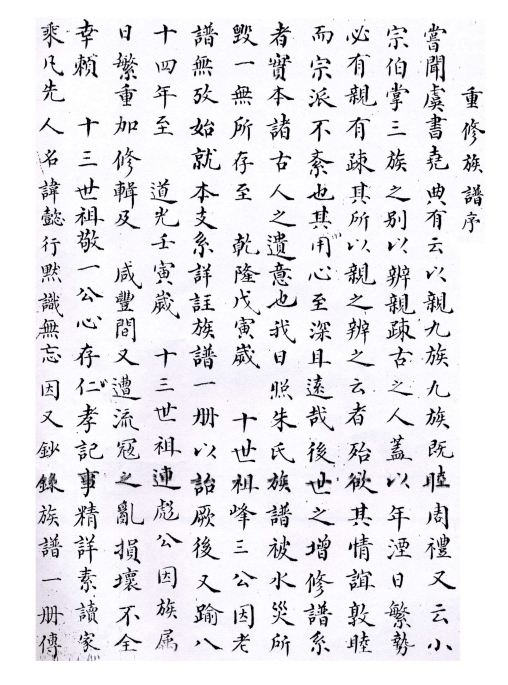 重修族譜序
嘗聞虞書堯典有云以親九族九族既睦周禮又云小
宗伯掌三族之別以辨親踈古之人蓋以年湮日繁勢
必有親有踈其所以親之辨之云者殆欲其情誼敦睦
而宗派不紊也其用心至深且遠哉後世之增修譜系
者實本諸古人之遺意也我日照朱氏族譜被水災所
毀一無所存至 乾隆戊寅歲 十世祖峰三公因老
譜無攷始就本支系詳註族譜一册以詒厥後又踰八
十四年至 道光壬寅歲 十三世祖連彪公因族属
日繁重加修輯及 咸豐間又遭流寇之亂損壞不全
幸賴 十三世祖敬一公心存仁孝記事精詳素讀家
乘凡先人名諱懿行黙識無忘因又鈔錄族譜一册傳